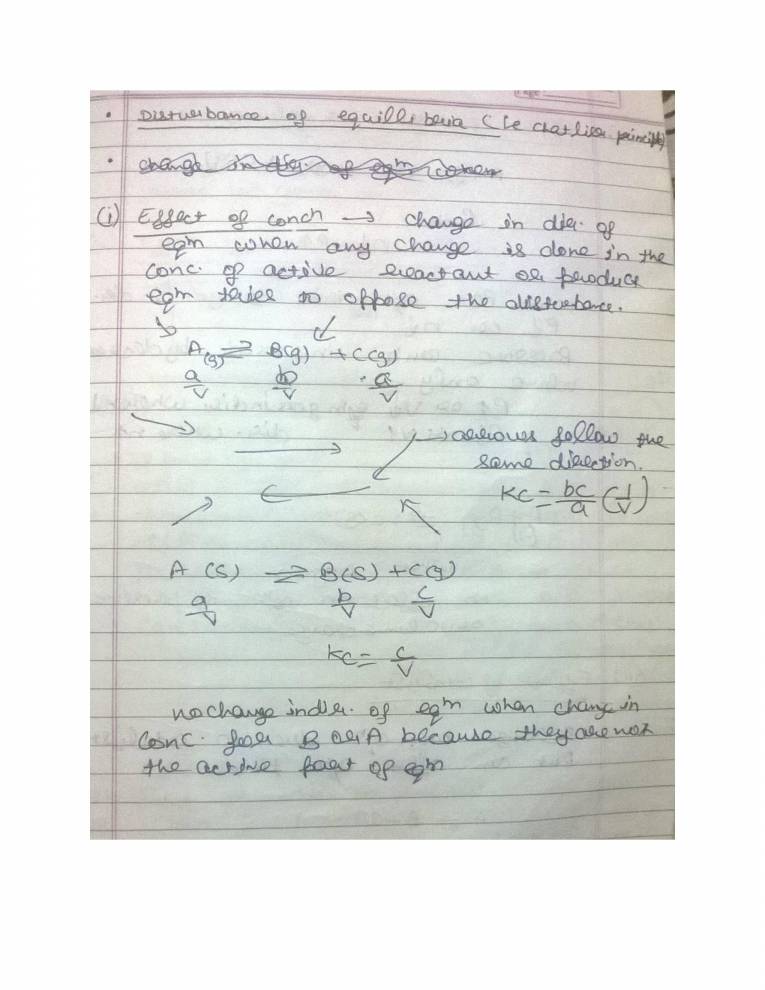 • Disturbance of equilliberia (le chatlier principle)
• change in dir. of eqm conen
(i) Effect of concn → change in dir. of
eqm when any change is done in the
conc. of active reactant or produce
eqm tries to oppose the disturbance.
A(g) ⇌ B(g) + C(g)
a/V b/V a/V
→ arrows follow the
same direction.
Kc = bc/a (1/V)
A (S) ⇌ B(S) + C(g)
a/V b/V c/V
Kc = c/V
no change in dir. of eqm when change in
conc. for B or A because they are not
the active part of eqm